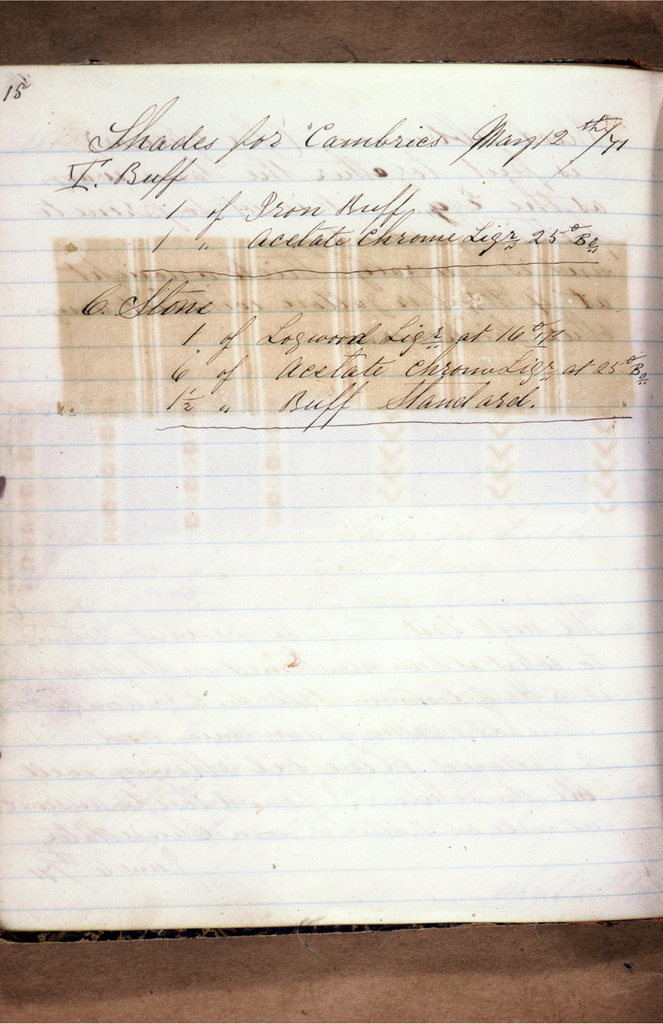 15
Shades for Cambrics May 12th/71
I. Buff
1 of Iron Buff
1 " Acetate Chrome Liqr 25° Be
C. Stone
1 of Logwood Liqr at 16°
6 of Acetate Chrome Liqr at 25° Be
1½ " Buff Standard.